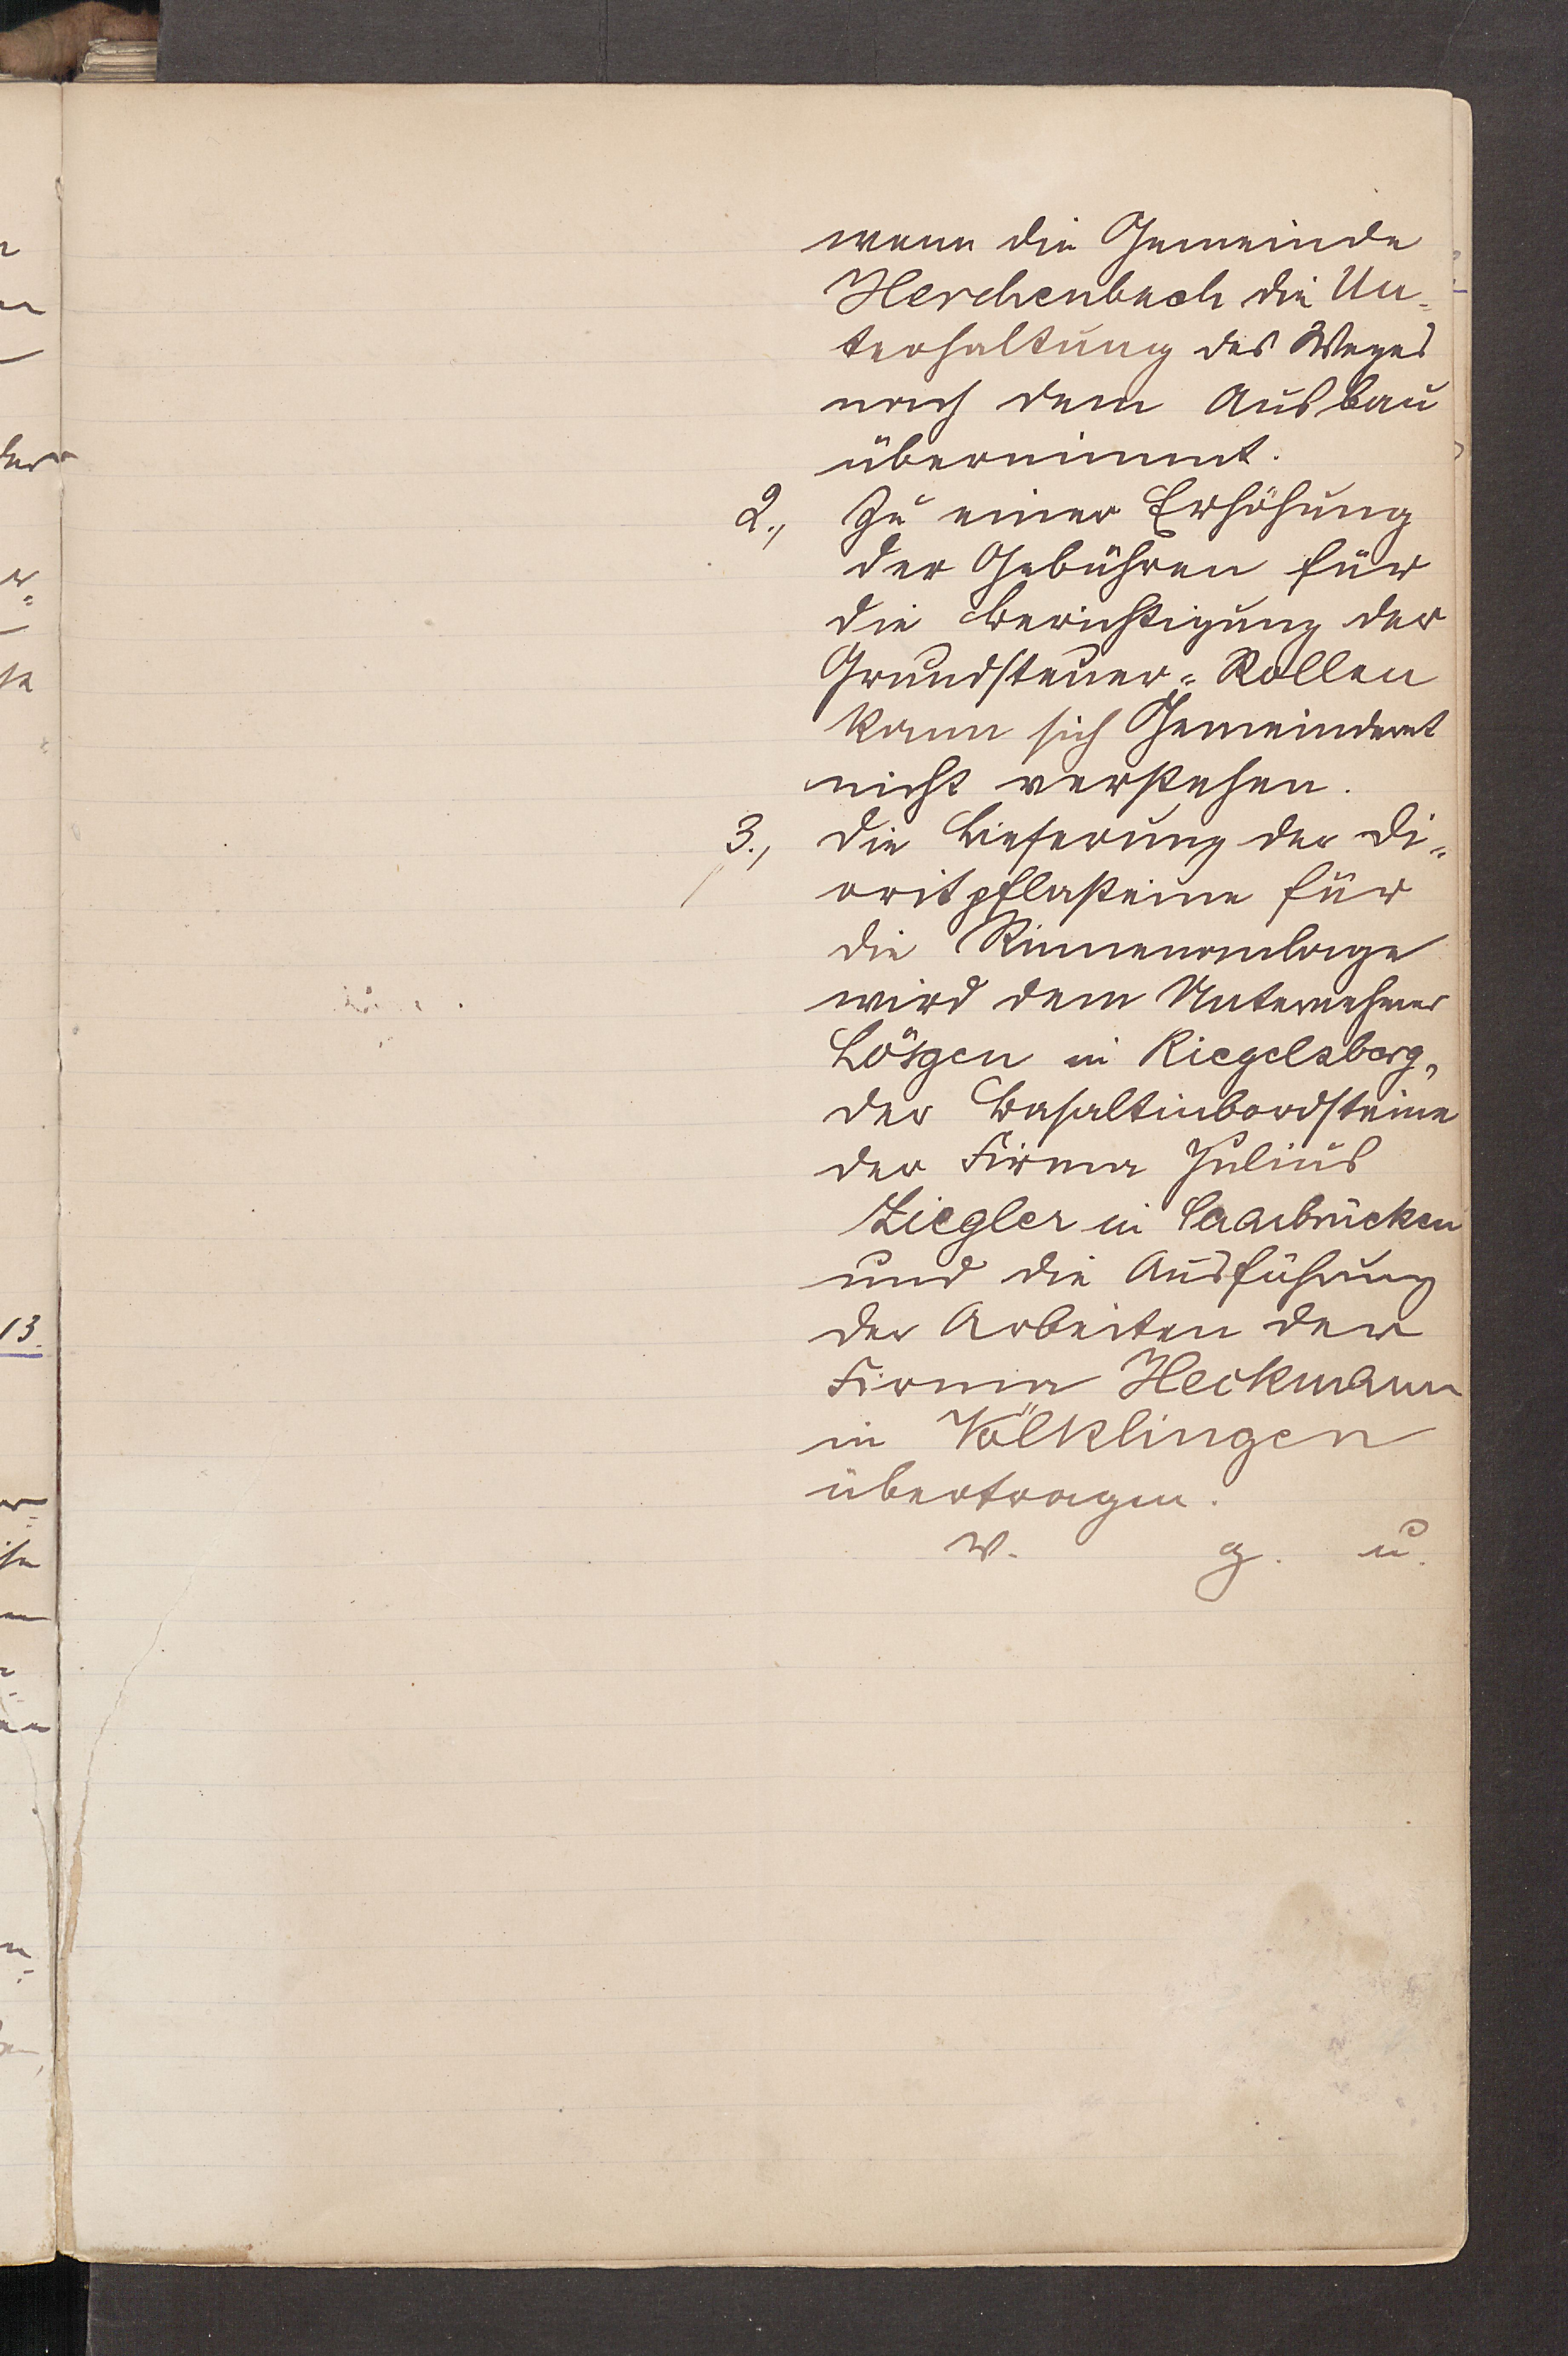 wenn die Gemeinde
Herchenbach die Un-
terhaltung des Weges
nach dem Ausbau
übernimmt.
2., Zu einer Erhöhung
der Gebühren für
die Berichtigung der
Grundsteuer-Rollen
kann sich Gemeinderat
nicht verstehen.
3., Die Lieferung der Di-
oritpflasteine für
die Rinnenanlage
wird dem Unternehmer
Lösgen in Riegelsberg,
der Basaltinbordsteine
der Firma Julius
Ziegler in Saarbrücken
und die Ausführung
der Arbeiten der
Firma Heckmann
in Völklingen
übertragen.
v. g. u.
13.